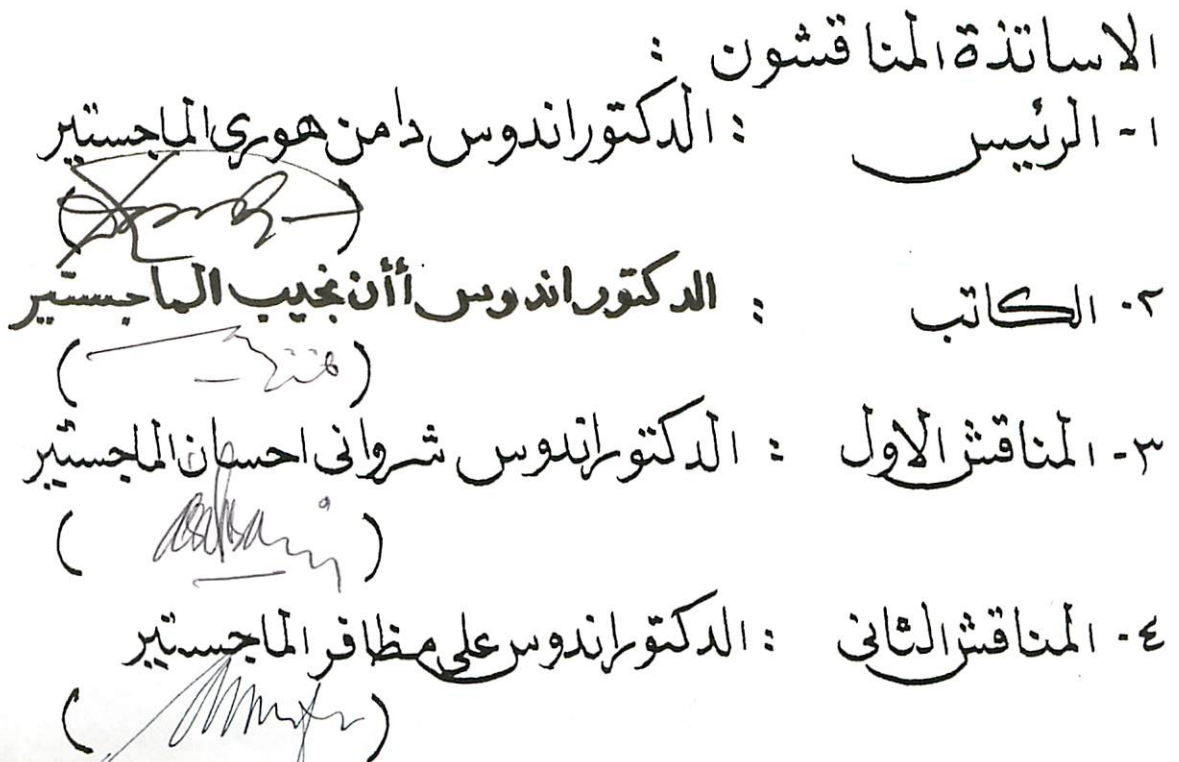 الاساتذة المناقشون :
١- الرئيس : الدكتوراندوس دامن هورى الماجستير
٢- الكاتب : الدكتوراندوس أأن نجيب الماجستير
٣- المناقش الاول : الدكتوراندوس شروانى احسان الماجستير
٤- المناقش الثانى : الدكتوراندوس على مظافر الماجستير